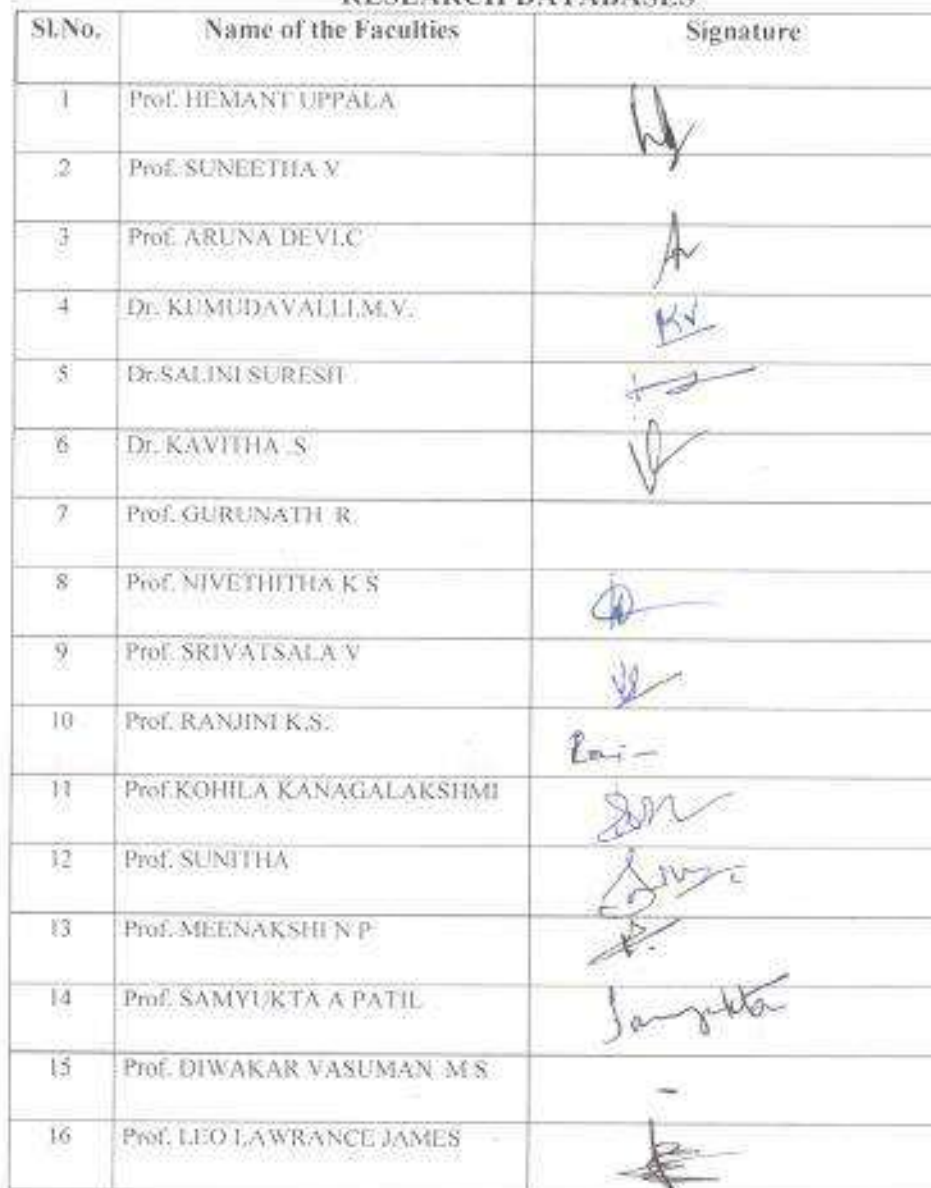 RESEARCH DATABASES
Sl.No. Name of the Faculties Signature
1 Prof. HEMANT UPPALA
2 Prof. SUNEETHA V
3 Prof. ARUNA DEVI.C
4 Dr. KUMUDAVALLI.M.V. KV
5 Dr.SALINI SURESH
6 Dr. KAVITHA .S
7 Prof. GURUNATH R
8 Prof. NIVETHITHA K S
9 Prof. SRIVATSALA V
10 Prof. RANJINI K.S.
11 Prof.KOHILA KANAGALAKSHMI
12 Prof. SUNITHA
13 Prof. MEENAKSHI N P
14 Prof. SAMYUKTA A PATIL Samyukta
15 Prof. DIWAKAR VASUMAN M S -
16 Prof. LEO LAWRANCE JAMES